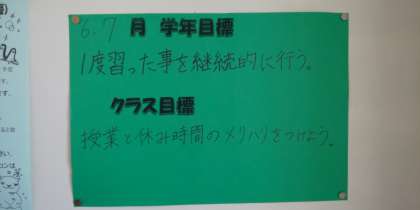 6.7 月 学年目標
1度習った事を継続的に行う。
クラス目標
授業と休み時間のメリハリをつけよう。